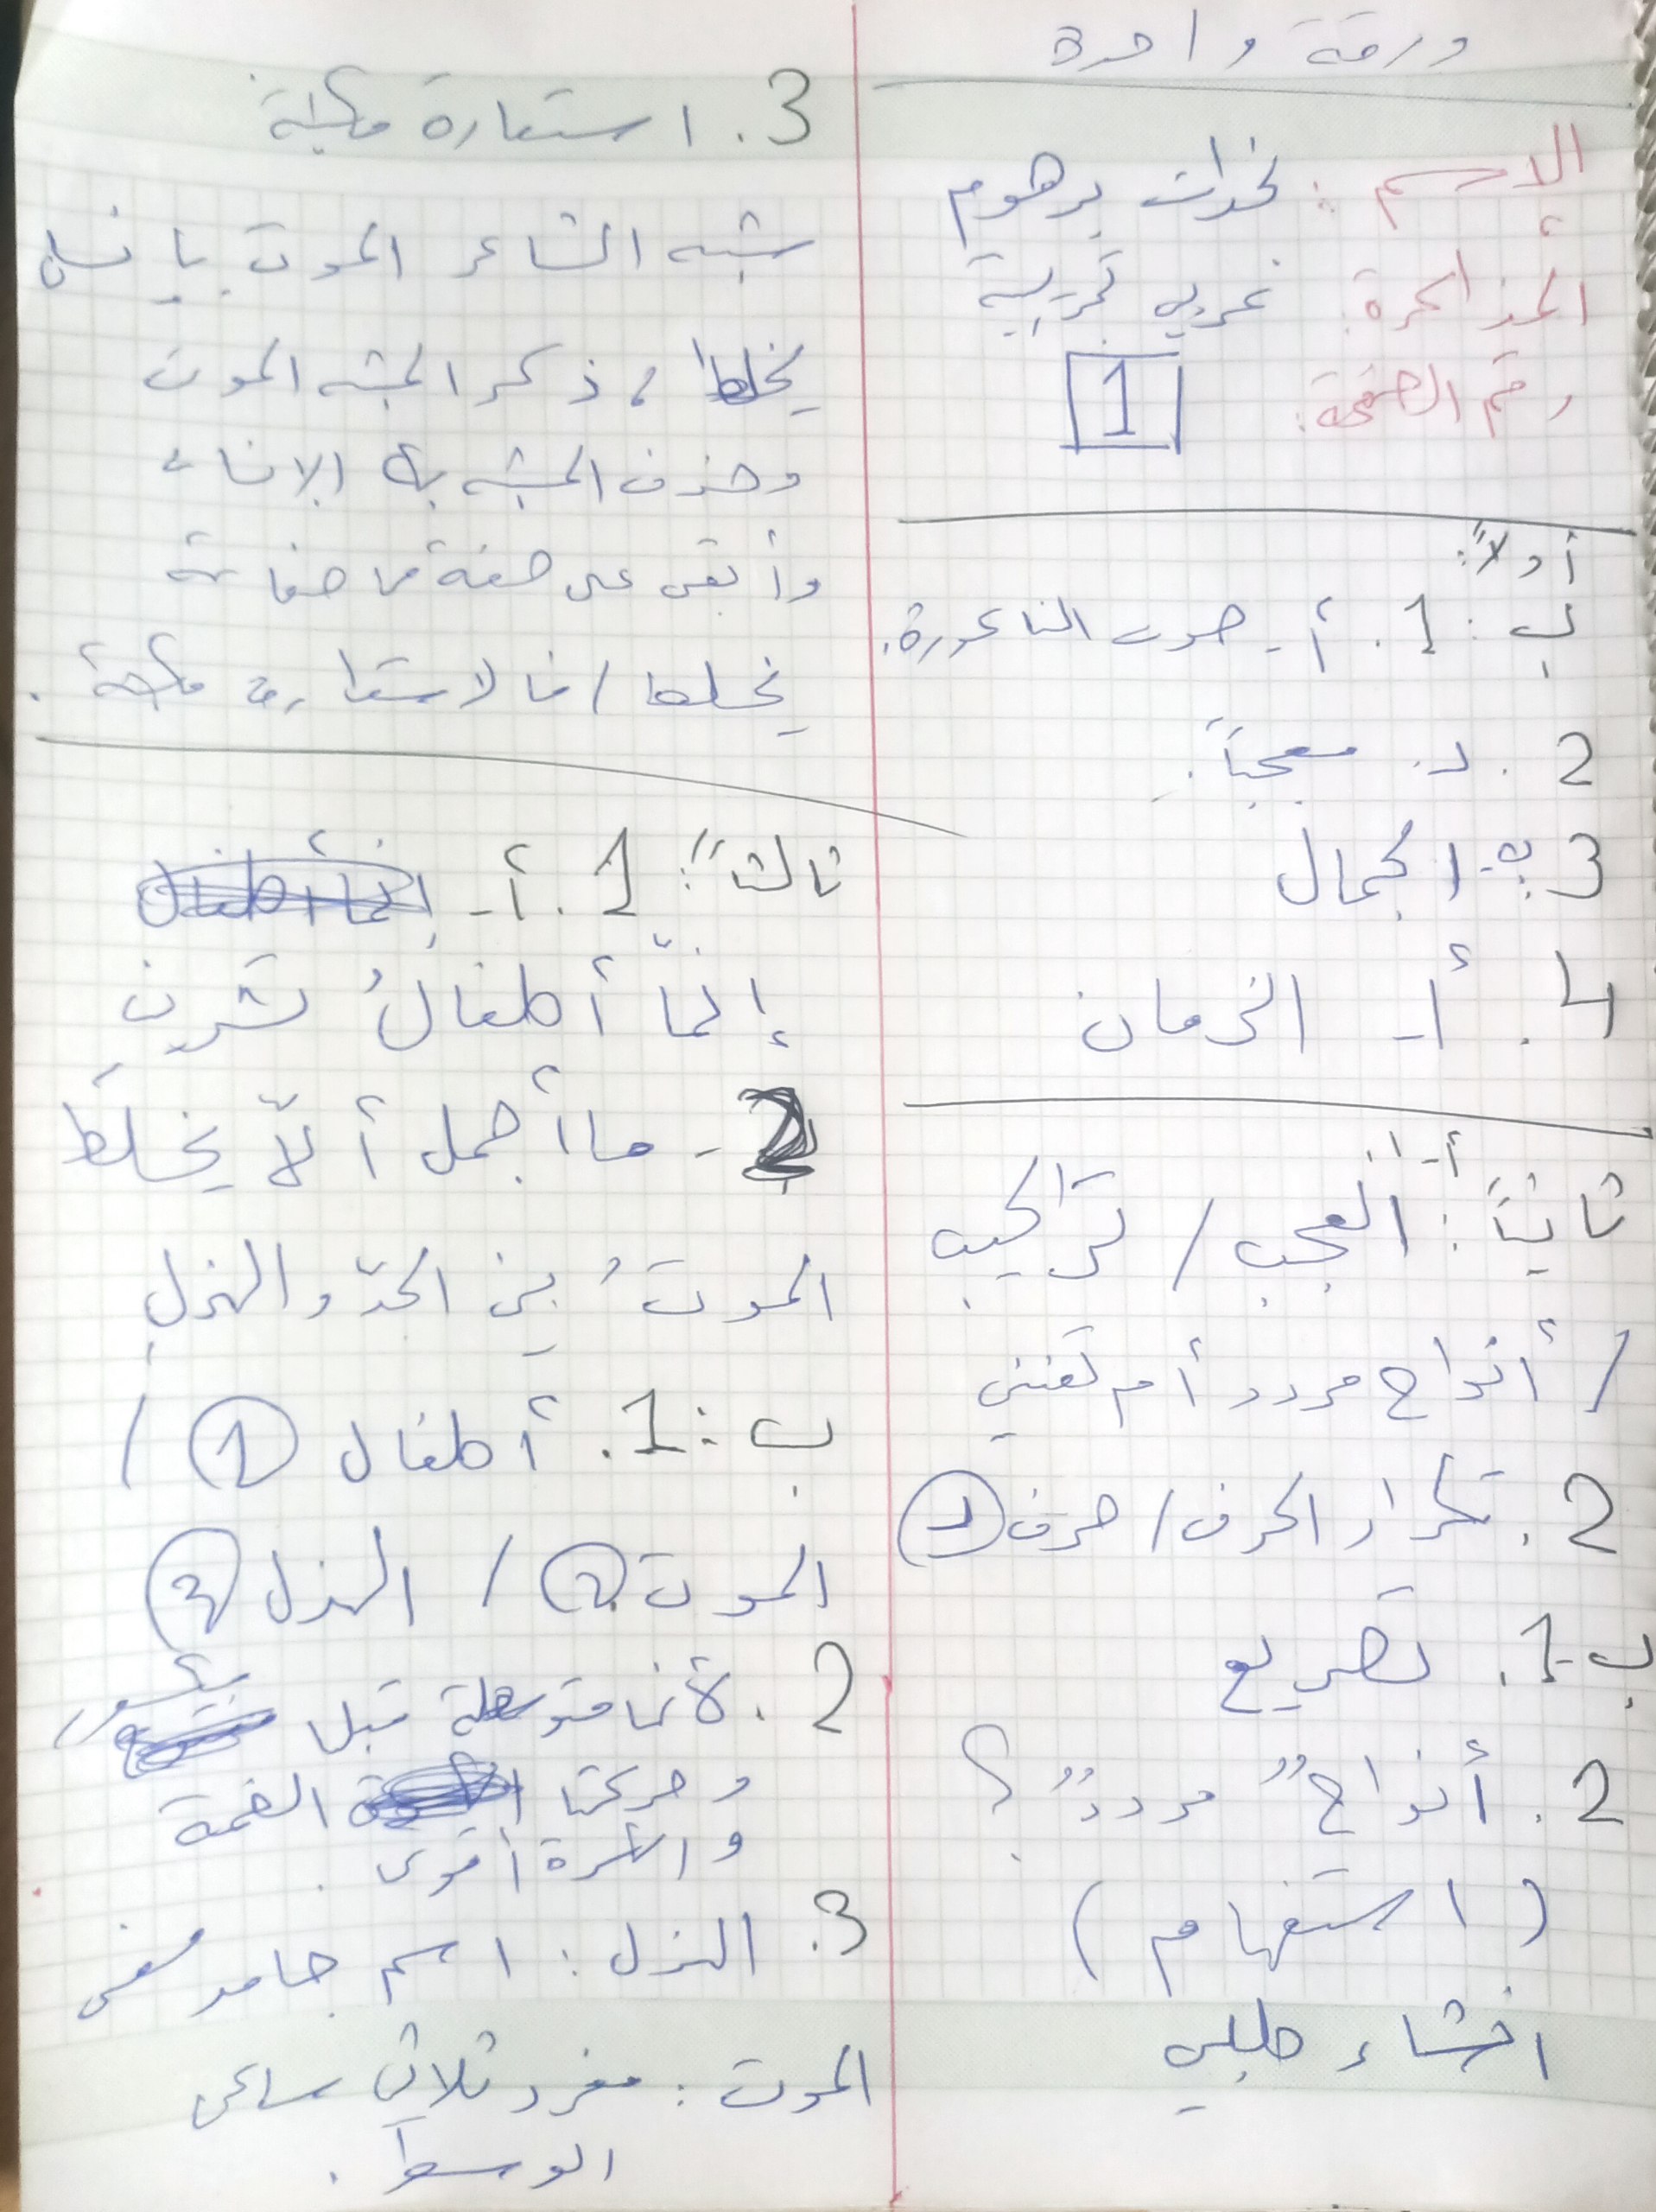 ورقة واحدة
الاسم: برهوم
المذاكرة: عربي تجريبية
رقم الصفحة: 1
أولاً:
ب: 1. أ- صوت الناعورة.
2. د. معجباً.
3. ب- الجمال
4. أ- الزمان
ثانياً: أ-1. التعجب / تراكيب
/ أنواح مردد أم تغني
2. تكرار الحرف / حرف 1
ب-1. تصريع
2. أنواحٌ مرددٌ؟
(استفهام)
انشاء طلبي
3. استعارة مكنية
شبه الشاعر الموت بإنسان
يخلط، ذكر المشبه الموت
وحذف المشبه به الإنسان
وأبقى على صفة من صفاته
يخلط / فالاستعارة مكنية.
ثالثاً: 1. أ-
إنّما أطفالُ تشرين
2- ما أجمل ألّا يخلطَ
الموتُ بين الجدّ والهزلِ
ب: 1. أطفال 1 /
الموت 2 / الهزل 3
2. لأنها متوسطة قبل بكسور
وحركتها الضمة
والكسرة أقوى.
3. الهزل: اسم جامد معنى
الموت: مفرد ثلاثي ساكن
الوسط.